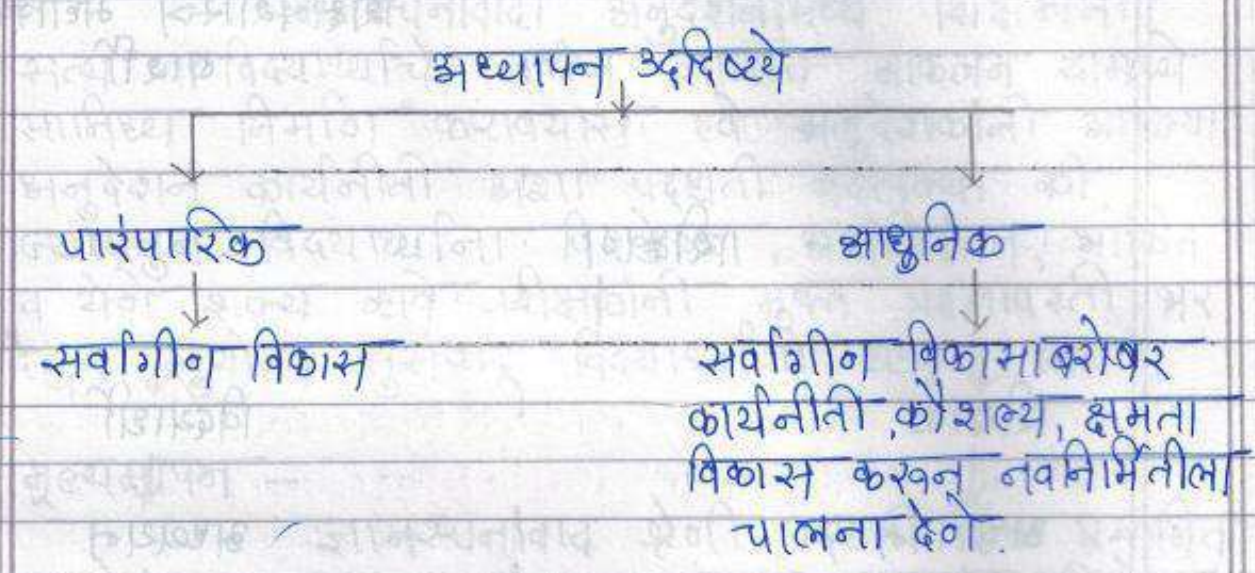 अध्यापन उद्दिष्ट्ये
पारंपारिक
आधुनिक
सर्वांगीण विकास
सर्वांगीण विकासाबरोबर
कार्यनीती, कौशल्य, क्षमता
विकास करवून नवनिर्मितीला
चालना देणे.